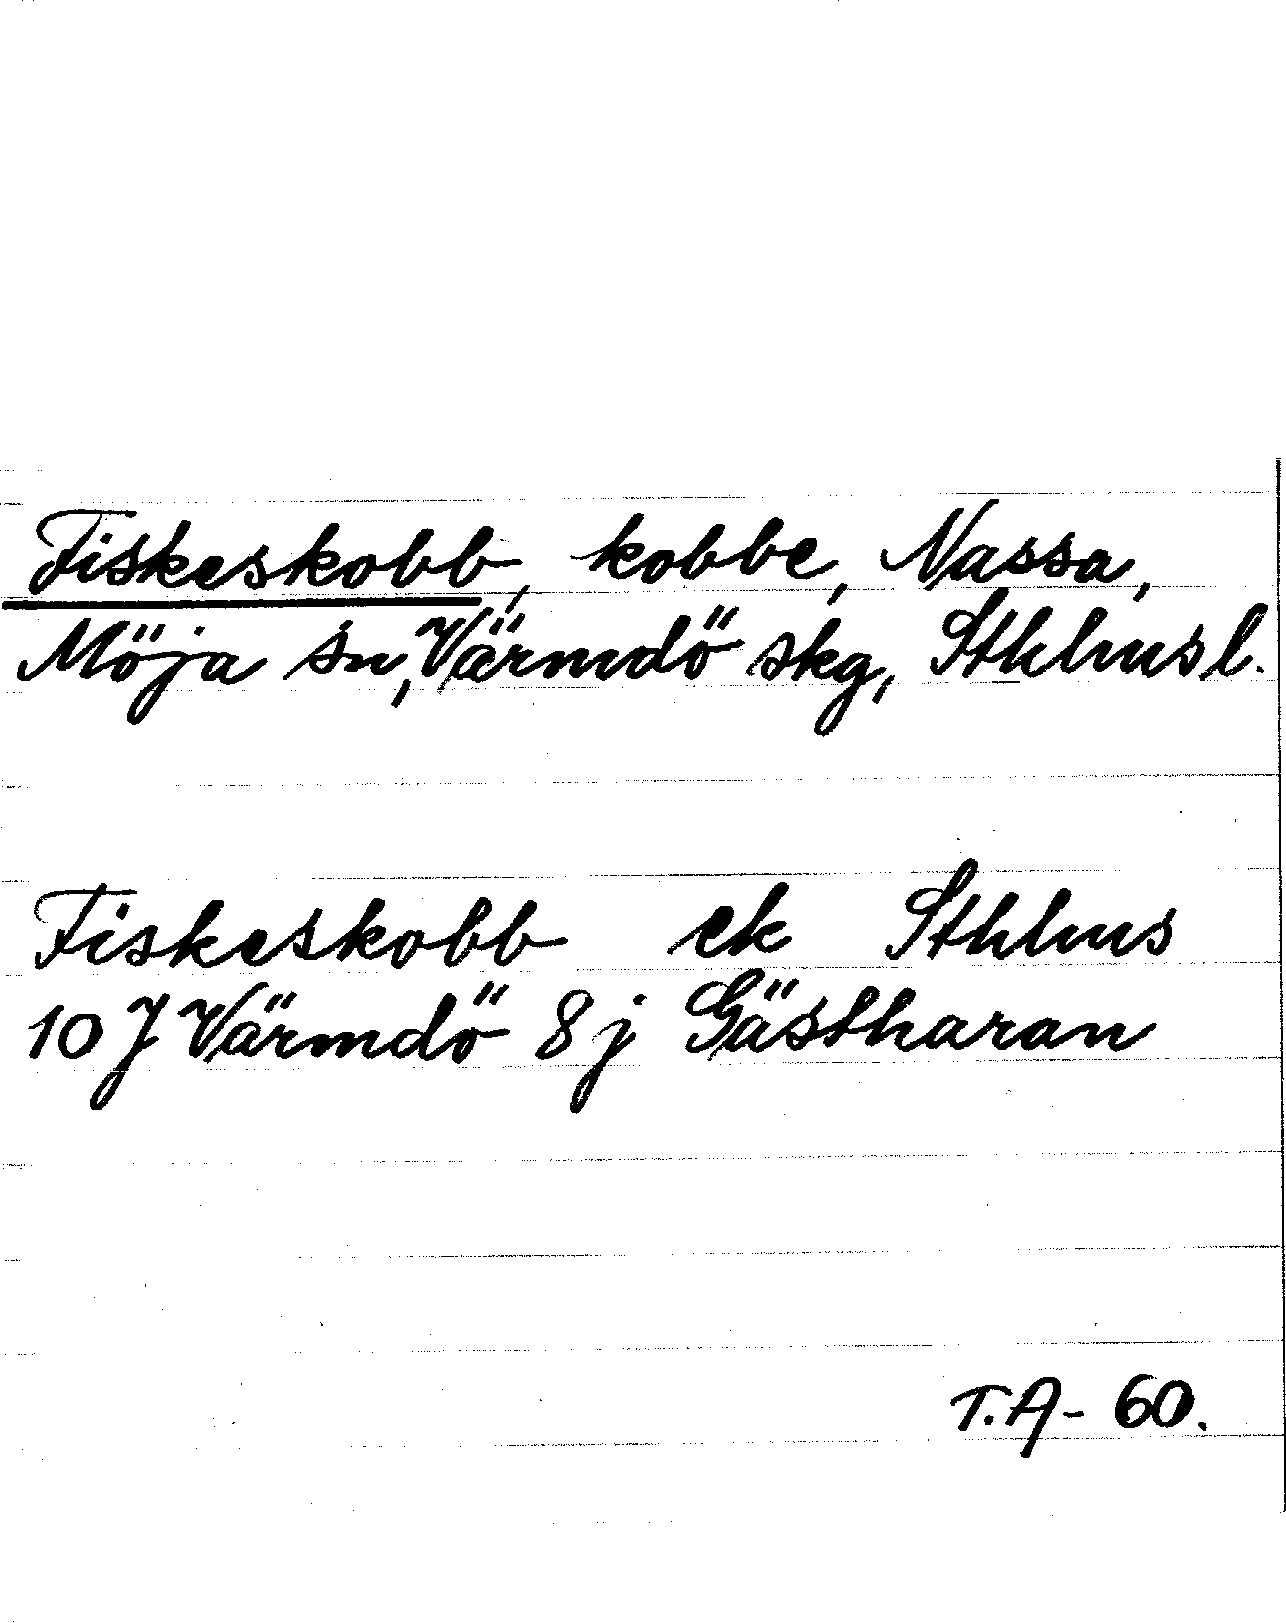 Fiskeskobb, kobbe, Nassa,
Möja sn, Värmdö skg, Sthlms l.
Fiskeskobb ek Sthlms
10 J Värmdö 8 j Gästharan
T.A- 60.